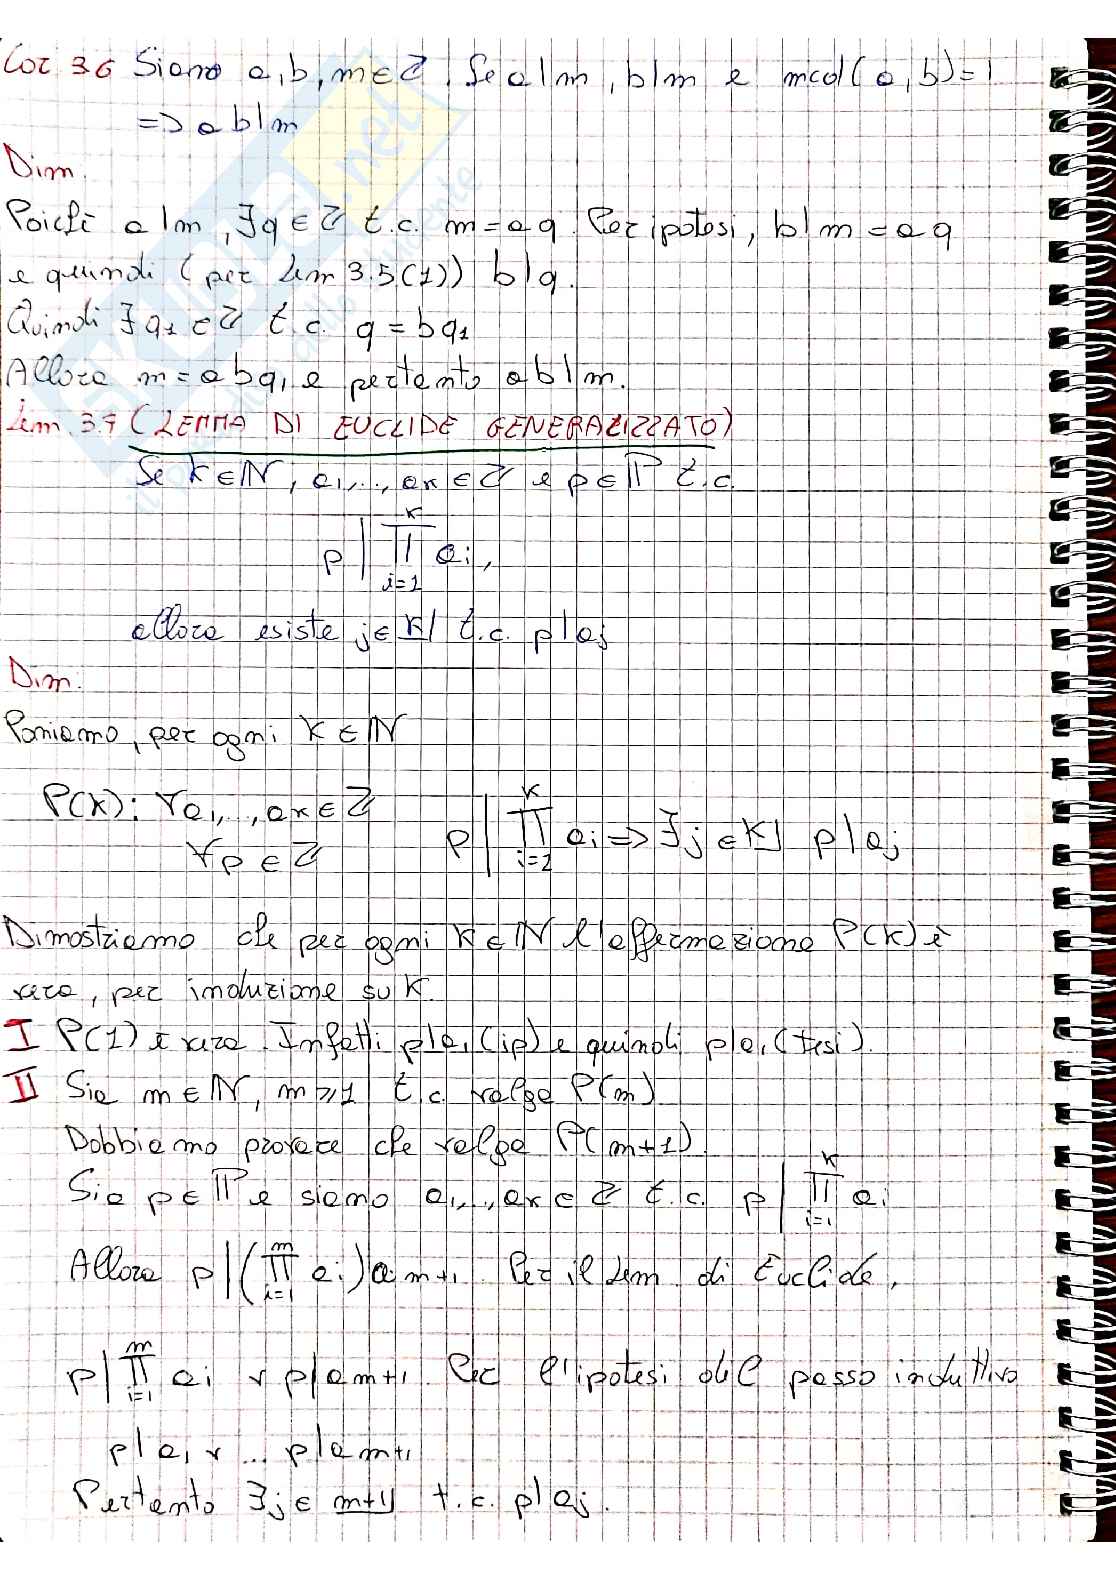 Cor 3.6 Siano a, b, m ∈ ℤ. Se a|m, b|m e mcd(a, b)=1
=> ab|m
Dim.
Poiché a|m, ∃q∈ℤ t.c. m=aq. Per ipotesi, b|m=aq
e quindi (per Lem 3.5(1)) b|q.
Quindi ∃q₁∈ℤ t.c. q=bq₁
Allora m=abq₁ e pertanto ab|m.
Lem. 3.7 (LEMMA DI EUCLIDE GENERALIZZATO)
Se k∈ℕ, a₁,..., aₖ∈ℤ e p∈ℙ t.c.
p | ∏_{i=1}^{k} aᵢ,
allora esiste j∈k| t.c. p|aⱼ
Dim.
Poniamo, per ogni k∈ℕ
P(k): ∀a₁,..., aₖ∈ℤ
∀p∈ℤ p | ∏_{i=1}^{k} aᵢ => ∃j∈k| p|aⱼ
Dimostriamo che per ogni k∈ℕ l'affermazione P(k) è
vera, per induzione su k.
I P(1) è vera. Infatti p|a₁ (ip) e quindi p|a₁ (tesi).
II Sia m∈ℕ, m⩾1 t.c. valga P(m)
Dobbiamo provare che valga P(m+1).
Sia p∈ℙ e siano a₁,..., aₖ∈ℤ t.c. p | ∏_{i=1}^{k} aᵢ
Allora p | (∏_{i=1}^{m} aᵢ) a_{m+1}. Per il Lem. di Euclide,
p | ∏_{i=1}^{m} aᵢ ∨ p|a_{m+1}. Per l'ipotesi del passo induttivo
p|a₁ ∨ ... p|a_{m+1}
Pertanto ∃j∈ m+1| t.c. p|aⱼ.